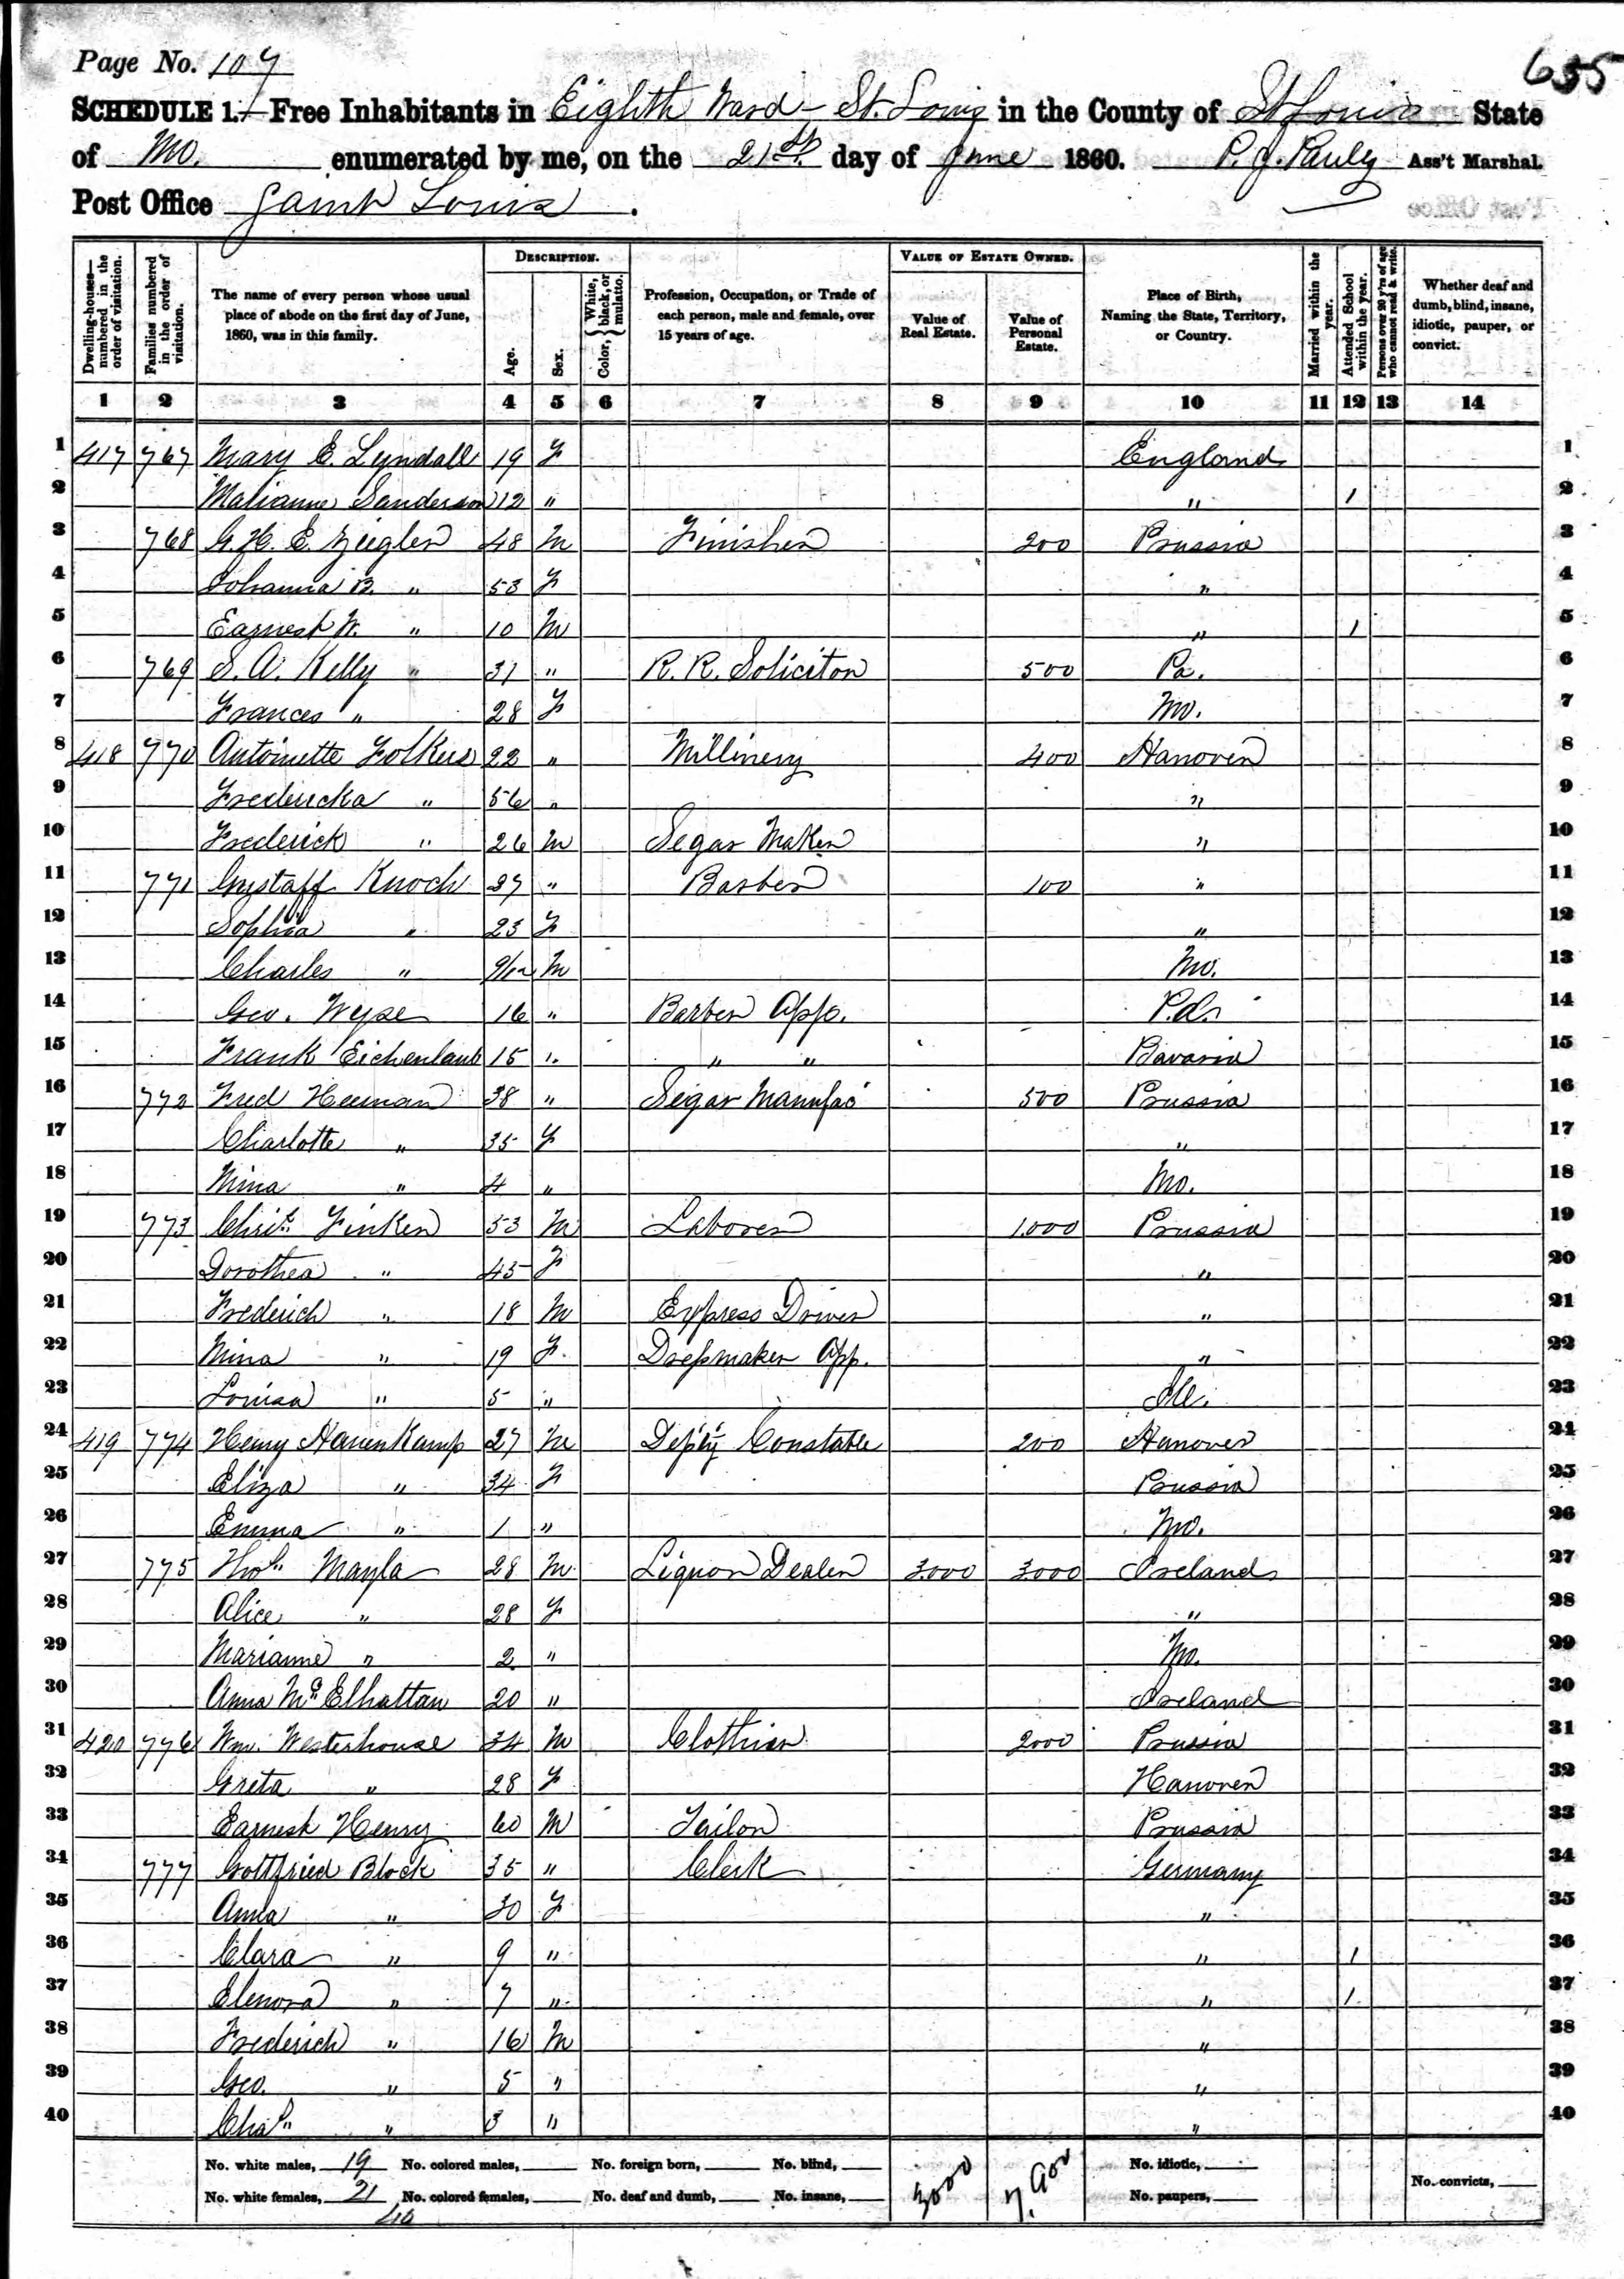 Page No. 107
655
SCHEDULE 1.—Free Inhabitants in Eighth Ward - St. Louis in the County of St Louis State
of Mo. enumerated by me, on the 21st day of June 1860. P. J. Pauly Ass't Marshal.
Post Office Saint Louis.
Dwelling-houses—numbered in the order of visitation. Families numbered in the order of visitation. The name of every person whose usual place of abode on the first day of June, 1860, was in this family. DESCRIPTION. Age. Sex. Color, White, black, or mulatto. Profession, Occupation, or Trade of each person, male and female, over 15 years of age. VALUE OF ESTATE OWNED. Value of Real Estate. Value of Personal Estate. Place of Birth, Naming the State, Territory, or Country. Married within the year. Attended School within the year. Persons over 20 y'rs of age who cannot read & write. Whether deaf and dumb, blind, insane, idiotic, pauper, or convict.
1 2 3 4 5 6 7 8 9 10 11 12 13 14
1 417 767 Mary E. Lyndall 19 F England 1
2 Malianne Sanderson 12 " " / 2
3 768 G. H. E. Ziegler 48 M Finisher 200 Prussia 3
4 Johanna B. " 53 F " 4
5 Earnest W. " 10 M " / 5
6 769 S. A. Kelly " 31 " R. R. Soliciter 500 Pa. 6
7 Frances " 28 F Mo. 7
8 418 770 Antoinette Folkus 22 " Millinery 400 Hanover 8
9 Fredericka " 56 " " 9
10 Frederick " 26 M Segar Maker " 10
11 771 Gustaff Knoch 27 " Barber 100 " 11
12 Sophia " 23 F " 12
13 Charles " 9/12 M Mo. 13
14 Geo. Wepse 16 " Barber App. Pa. 14
15 Frank Eichenlaub 15 " " " Bavaria 15
16 772 Fred Heeman 38 " Segar Manufac 500 Prussia 16
17 Charlotte " 35 F " 17
18 Mina " 4 " Mo. 18
19 773 Chrit. Finken 53 M Laborer 1.000 Prussia 19
20 Dorothea " 45 F " 20
21 Frederich " 18 M Express Driver " 21
22 Mina " 19 F. Dressmaker App. " 22
23 Louisa " 5 " Ill. 23
24 419 774 Henry Hanenkamp 27 M Dep'ty Constable 200 Hanover 24
25 Eliza " 34 F Prussia 25
26 Emma " 1 " Mo. 26
27 775 Thos. Mayla 28 M Liquor Dealer 3.000 3.000 Ireland 27
28 Alice " 28 F " 28
29 Marianne " 2 " Mo. 29
30 Anna McElhattan 20 " Ireland 30
31 420 776 Wm. Westerhouse 34 M Clothier 2000 Prussia 31
32 Greta " 28 F Hanover 32
33 Earnest Henry 60 M Tailor Prussia 33
34 777 Gottfried Block 35 " Clerk Germany 34
35 Anna " 30 F " 35
36 Clara " 9 " " / 36
37 Elenora " 7 " " / 37
38 Frederich " 16 M " 38
39 Geo. " 5 " " 39
40 Chas. " 3 " " 40
No. white males, 19 No. colored males, No. foreign born, No. blind, 3000 7.900 No. idiotic,
No. white females, 21 No. colored females, No. deaf and dumb, No. insane, No. paupers, No. convicts,
40